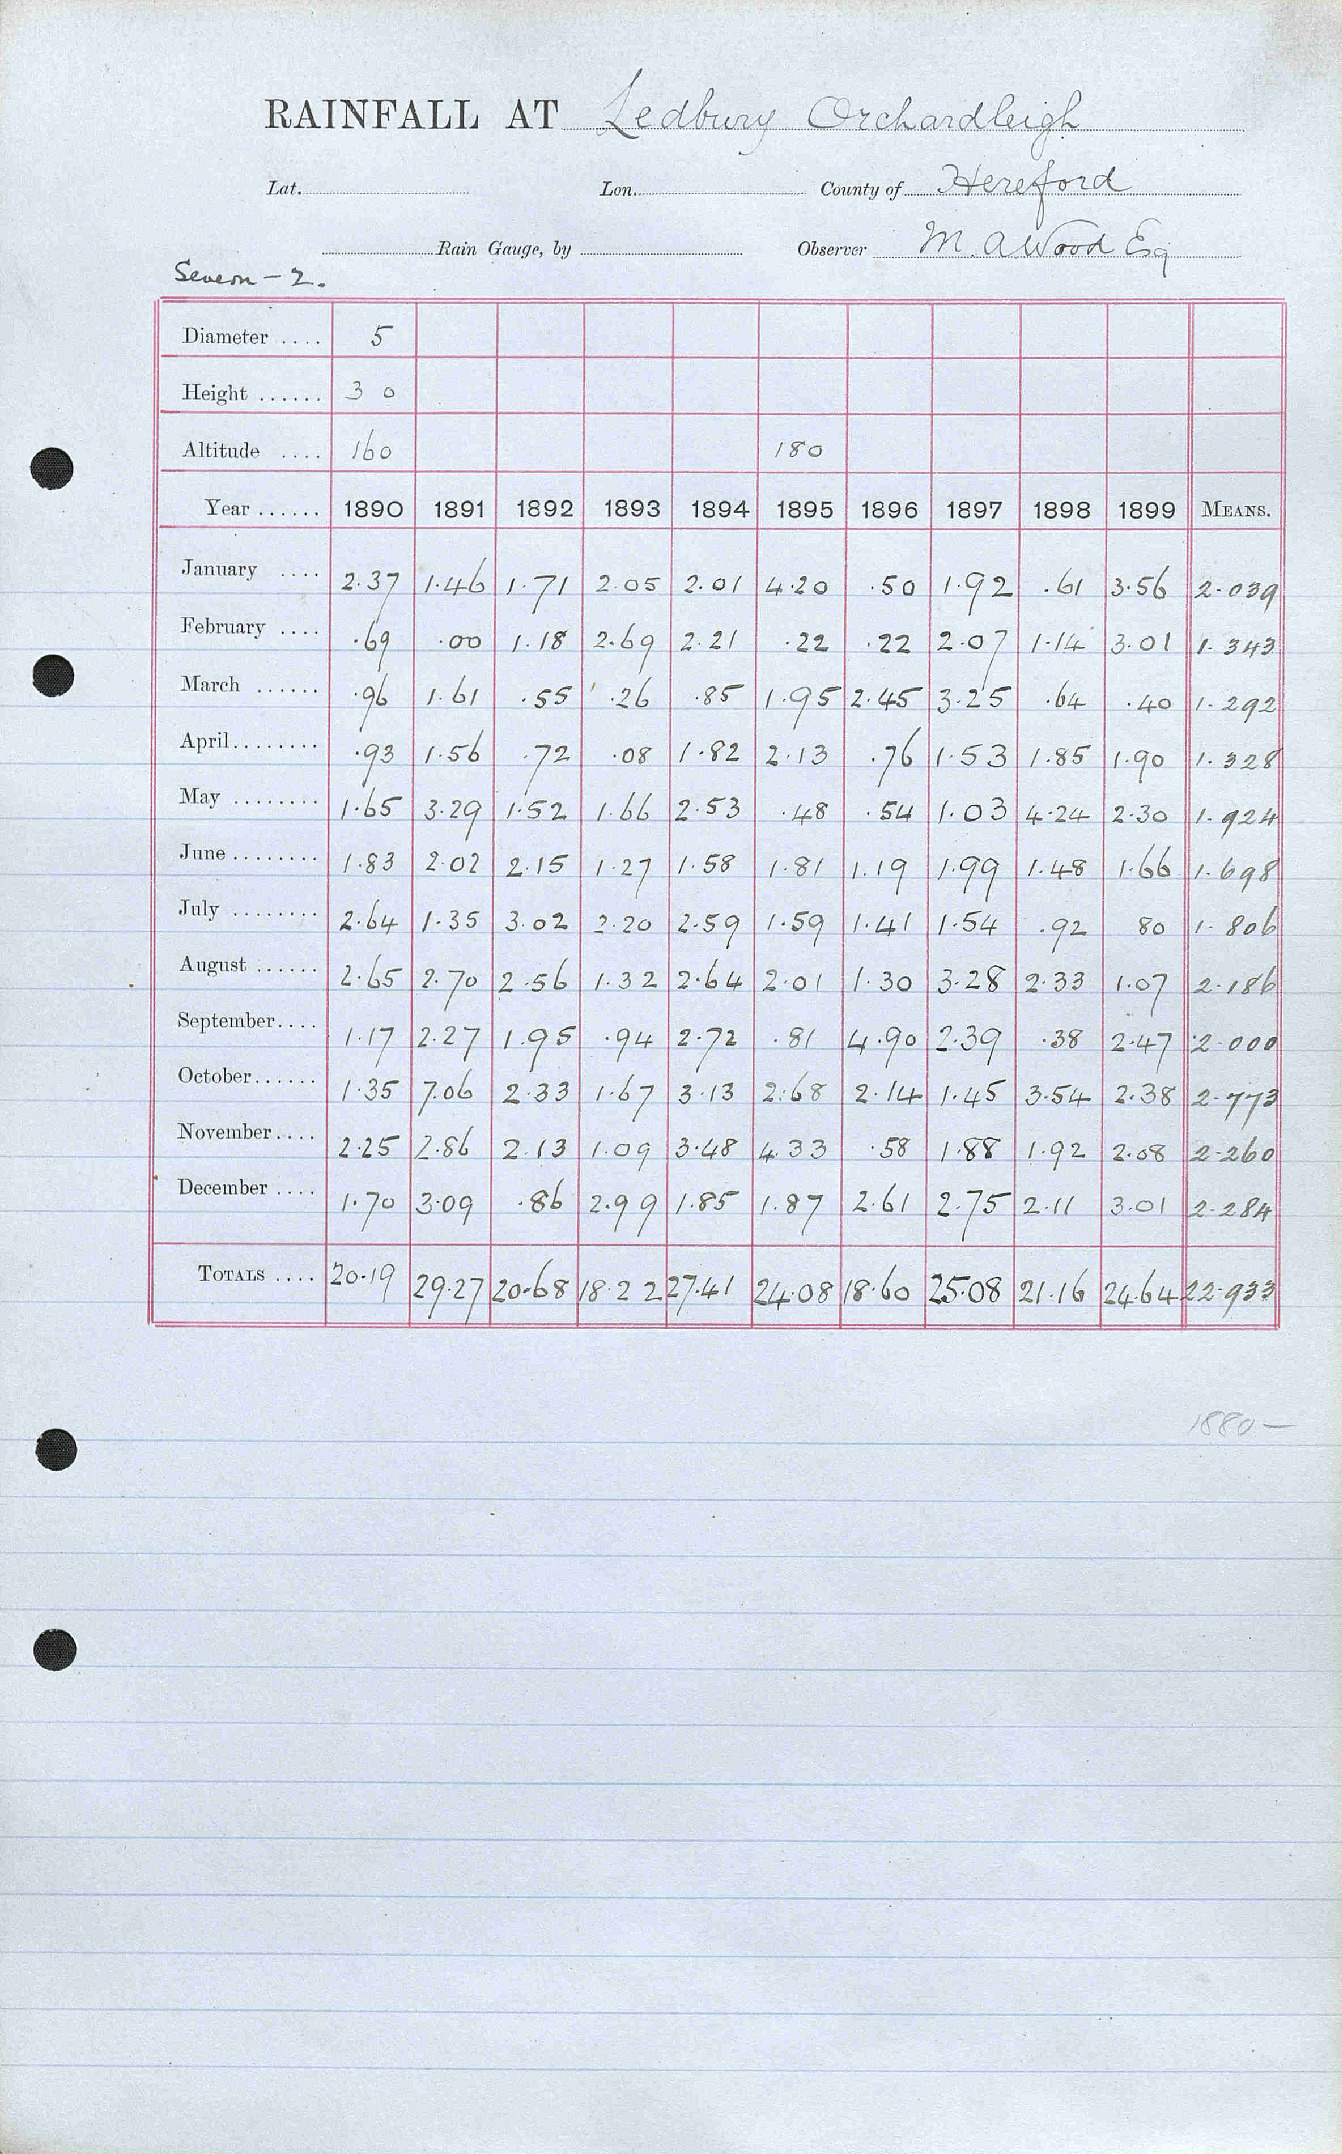 RAINFALL AT Ledbury Orchardleigh
Lat. Lon. County of Hereford
Rain Gauge, by Observer M. A Wood Esq
Severn - 2.
Diameter .... 5
Height ...... 30
Altitude .... 160 180
Year ...... 1890 1891 1892 1893 1894 1895 1896 1897 1898 1899 MEANS.
January .... 2.37 1.46 1.71 2.05 2.01 4.20 .50 1.92 .61 3.56 2.039
February .... .69 .00 1.18 2.69 2.21 .22 .22 2.07 1.14 3.01 1.343
March ...... .96 1.61 .55 .26 .85 1.95 2.45 3.25 .64 .40 1.292
April ........ .93 1.56 .72 .08 1.82 2.13 .76 1.53 1.85 1.90 1.328
May ........ 1.65 3.29 1.52 1.66 2.53 .48 .54 1.03 4.24 2.30 1.924
June ........ 1.83 2.02 2.15 1.27 1.58 1.81 1.19 1.99 1.48 1.66 1.698
July ........ 2.64 1.35 3.02 2.20 2.59 1.59 1.41 1.54 .92 80 1.806
August ...... 2.65 2.70 2.56 1.32 2.64 2.01 1.30 3.28 2.33 1.07 2.186
September .... 1.17 2.27 1.95 .94 2.72 .81 4.90 2.39 .38 2.47 2.000
October ...... 1.35 7.06 2.33 1.67 3.13 2.68 2.14 1.45 3.54 2.38 2.773
November .... 2.25 2.86 2.13 1.09 3.48 4.33 .58 1.88 1.92 2.08 2.260
December .... 1.70 3.09 .86 2.99 1.85 1.87 2.61 2.75 2.11 3.01 2.284
TOTALS .... 20.19 29.27 20.68 18.22 27.41 24.08 18.60 25.08 21.16 24.64 22.933
1880 —